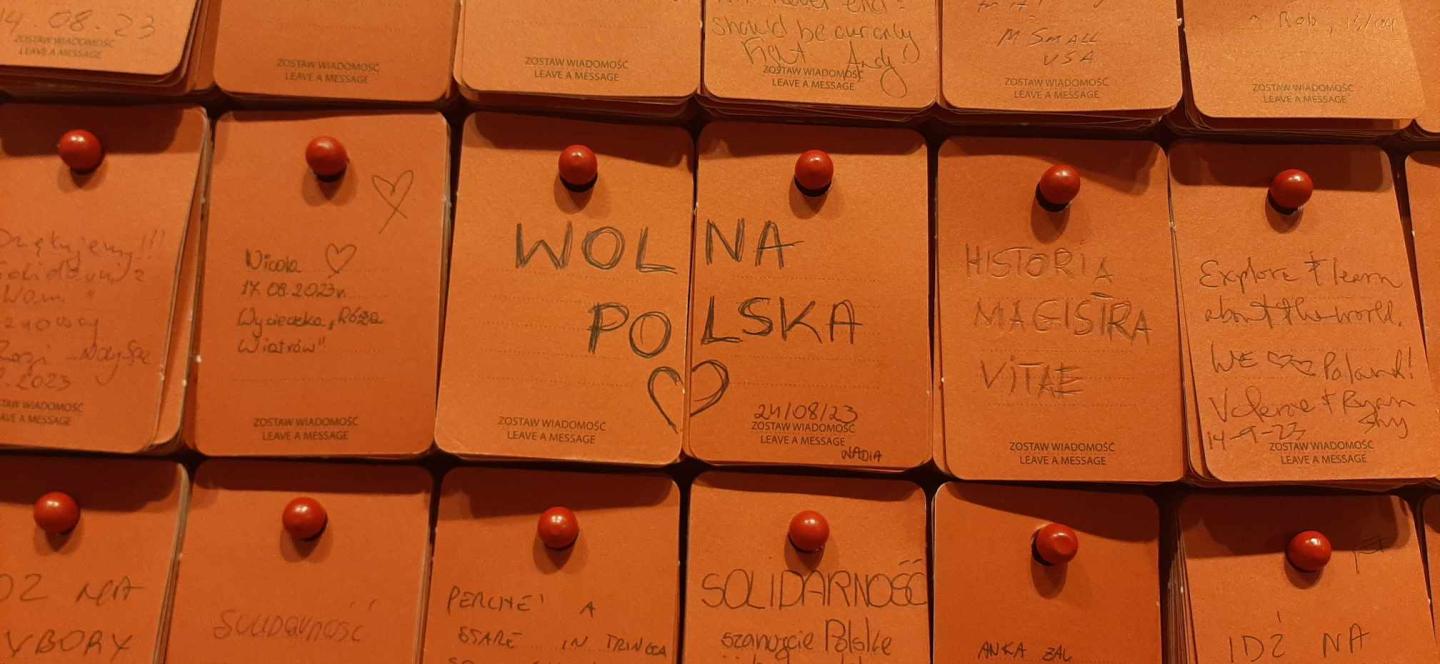 14.08.23
ZOSTAW WIADOMOŚĆ
LEAVE A MESSAGE
ZOSTAW WIADOMOŚĆ
LEAVE A MESSAGE
ZOSTAW WIADOMOŚĆ
LEAVE A MESSAGE
never end!
should be our only
Andy!
ZOSTAW WIADOMOŚĆ
LEAVE A MESSAGE
M SMALL
USA
ZOSTAW WIADOMOŚĆ
LEAVE A MESSAGE
Rob,
ZOSTAW WIADOMOŚĆ
LEAVE A MESSAGE
Dziękujemy!!!
z
Wami"
.2023
ZOSTAW WIADOMOŚĆ
LEAVE A MESSAGE
Nicola
17.08.2023r.
Wycieczka „Róża
Wiatrów"
ZOSTAW WIADOMOŚĆ
LEAVE A MESSAGE
WOLNA
POLSKA
ZOSTAW WIADOMOŚĆ
LEAVE A MESSAGE
24/08/23
ZOSTAW WIADOMOŚĆ
LEAVE A MESSAGE
NADIA
HISTORIA
MAGISTRA
VITAE
ZOSTAW WIADOMOŚĆ
LEAVE A MESSAGE
Explore & learn
about the world.
WE Poland!
Valerie & Ryan
14-9-23
ZOSTAW WIADOMOŚĆ
LEAVE A MESSAGE
NA
YBORY
SOLIDARNOŚĆ
PERCHÉ A
STARE IN TRINCEA
SOLIDARNOŚĆ
szanujcie Polskę
ANKA
IDŹ NA